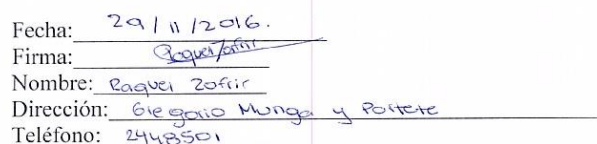 Fecha: 29/11/2016.
Firma: Raquel Zofrir
Nombre: Raquel Zofrir
Dirección: Gregorio Munga y Portete
Teléfono: 2448501